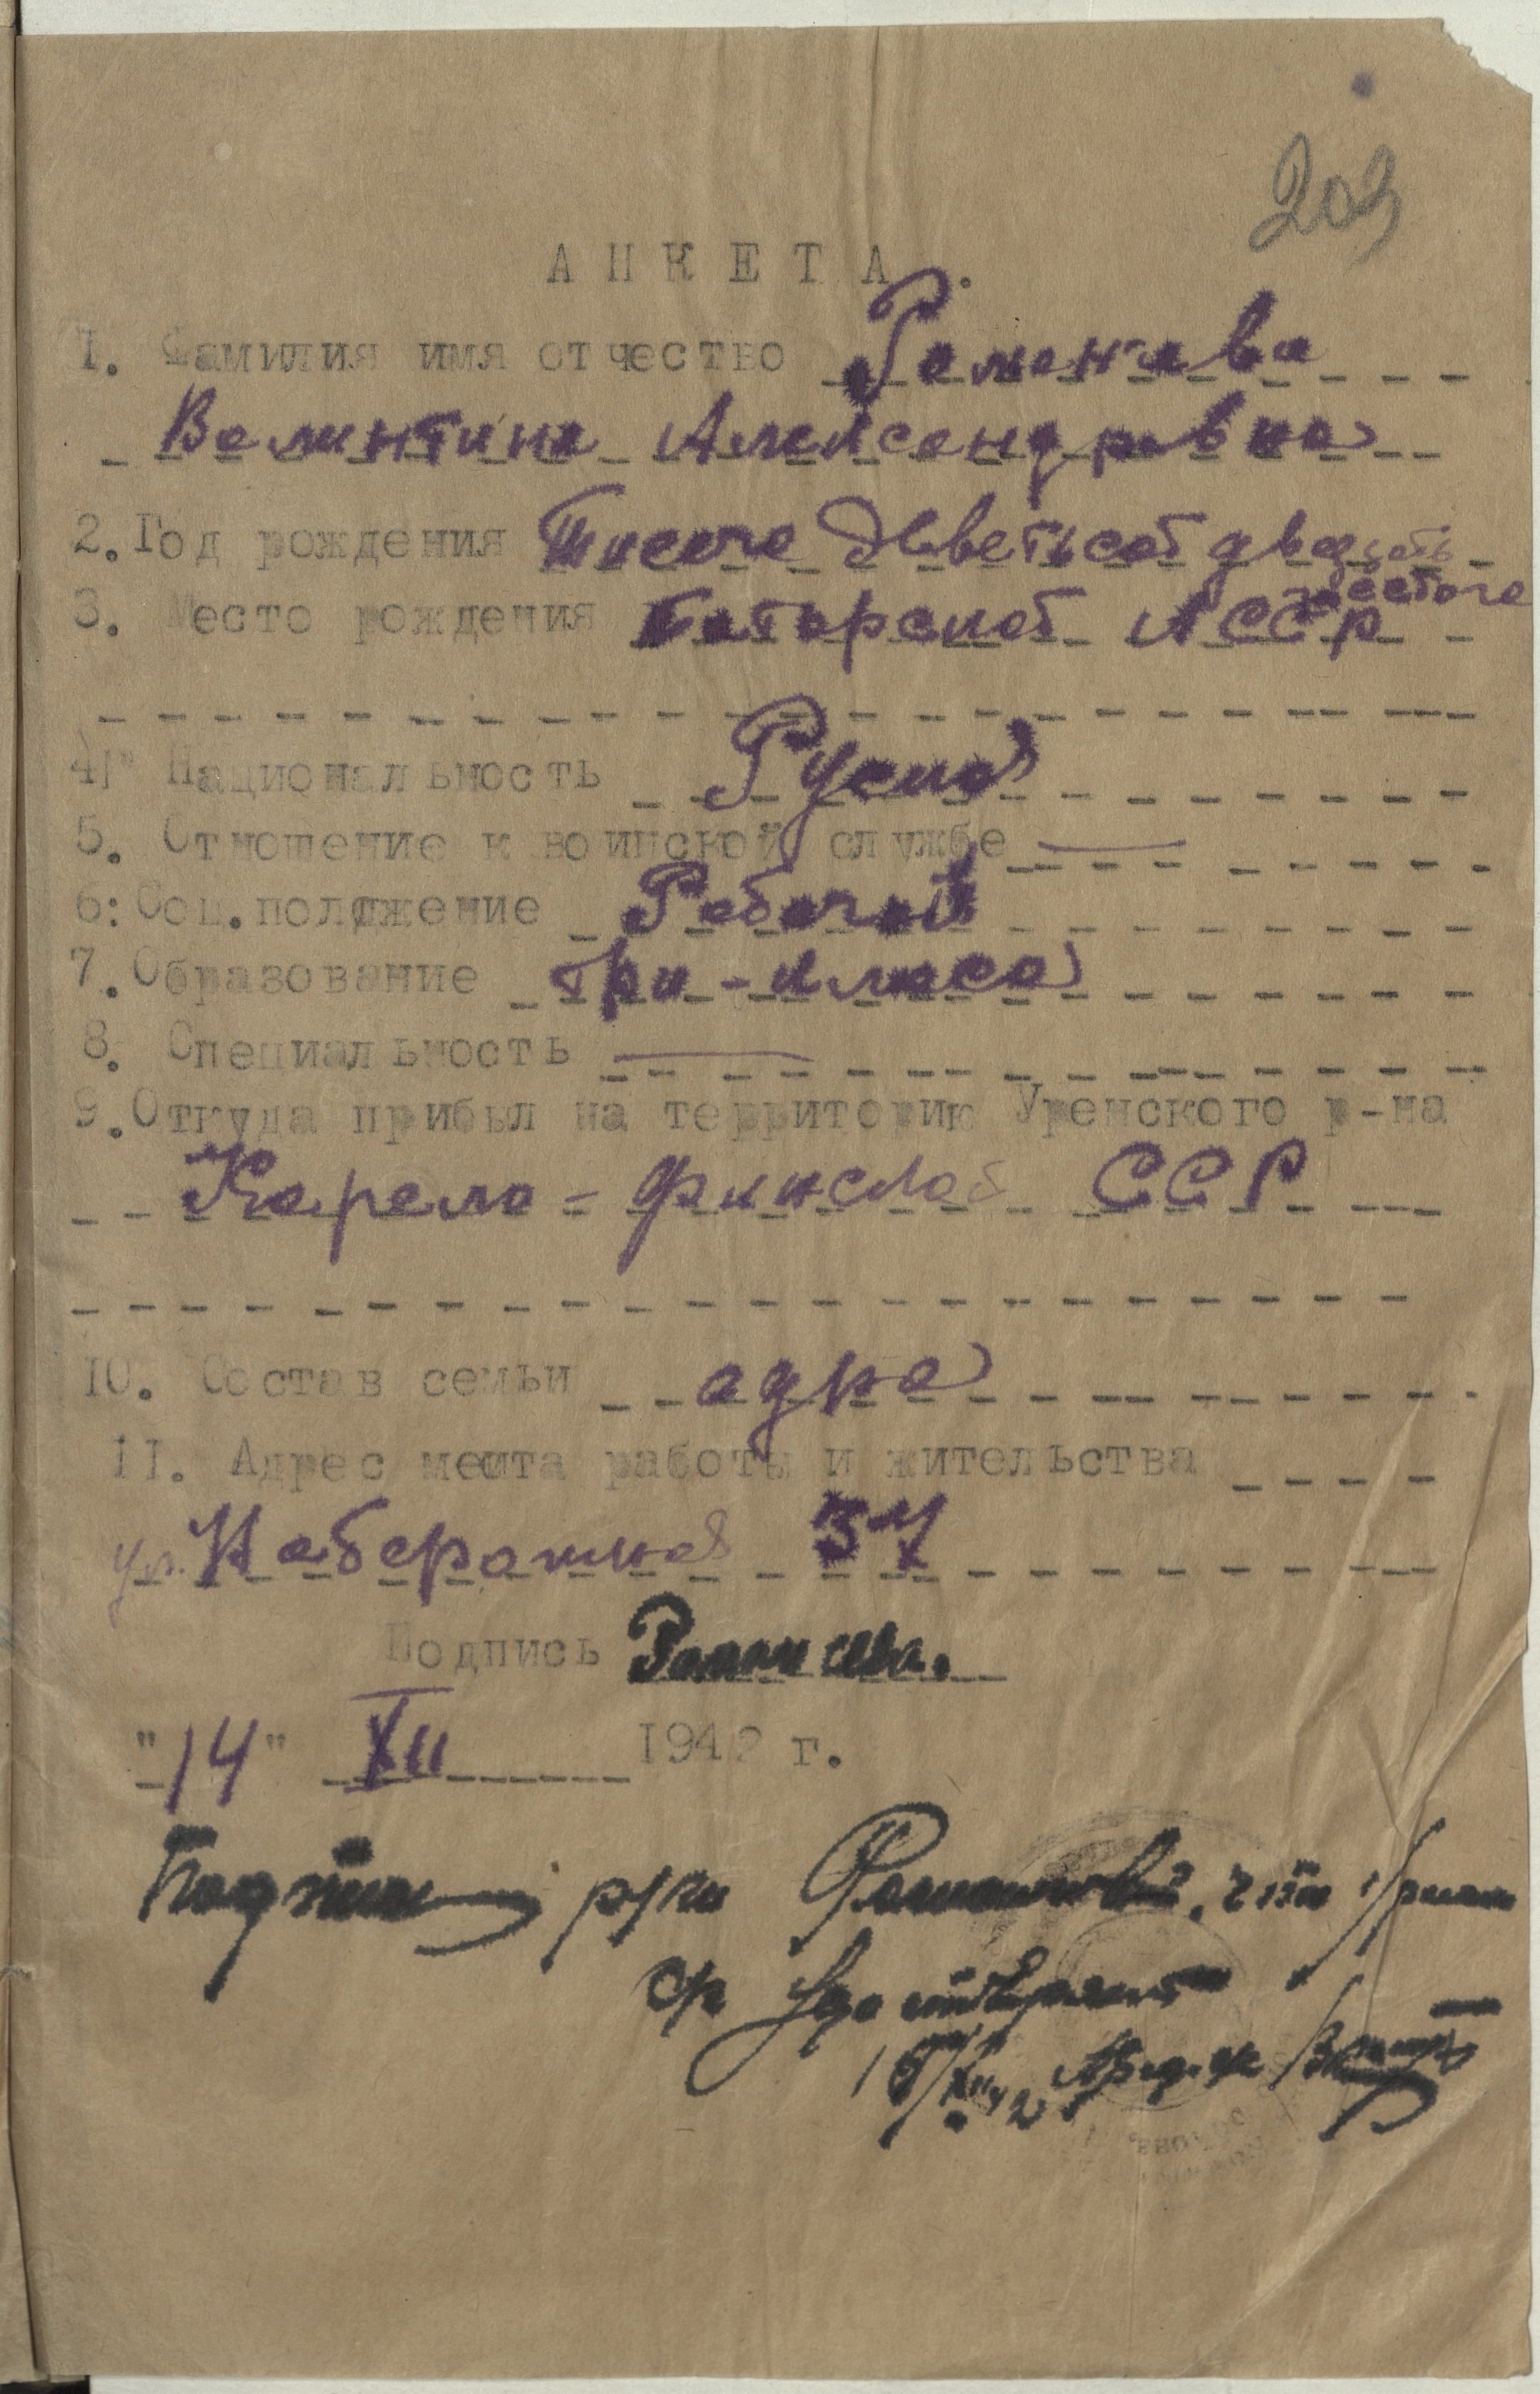 203
АНКЕТА.
1. Фамилия имя отчество Раманева
Валинтина Александравна
2. Год рождения Тисеча Деветьсот двацать
шестога
3. Место рождения Татарской АССР
4. Национальность Руская
5. Отношение к воинской службе —
6: Соц. положение Рабочий
7. Образование три - класа
8. Специальность —
9. Откуда прибыл на территорию Уренского р-на
Карело - финской ССР
10. Состав семьи адна
11. Адрес места работы и жительства
ул. Набережная 34
Подпись
"14" XII 1942 г.
Подпись руки
с/с удостоверяет
Пред. с/с